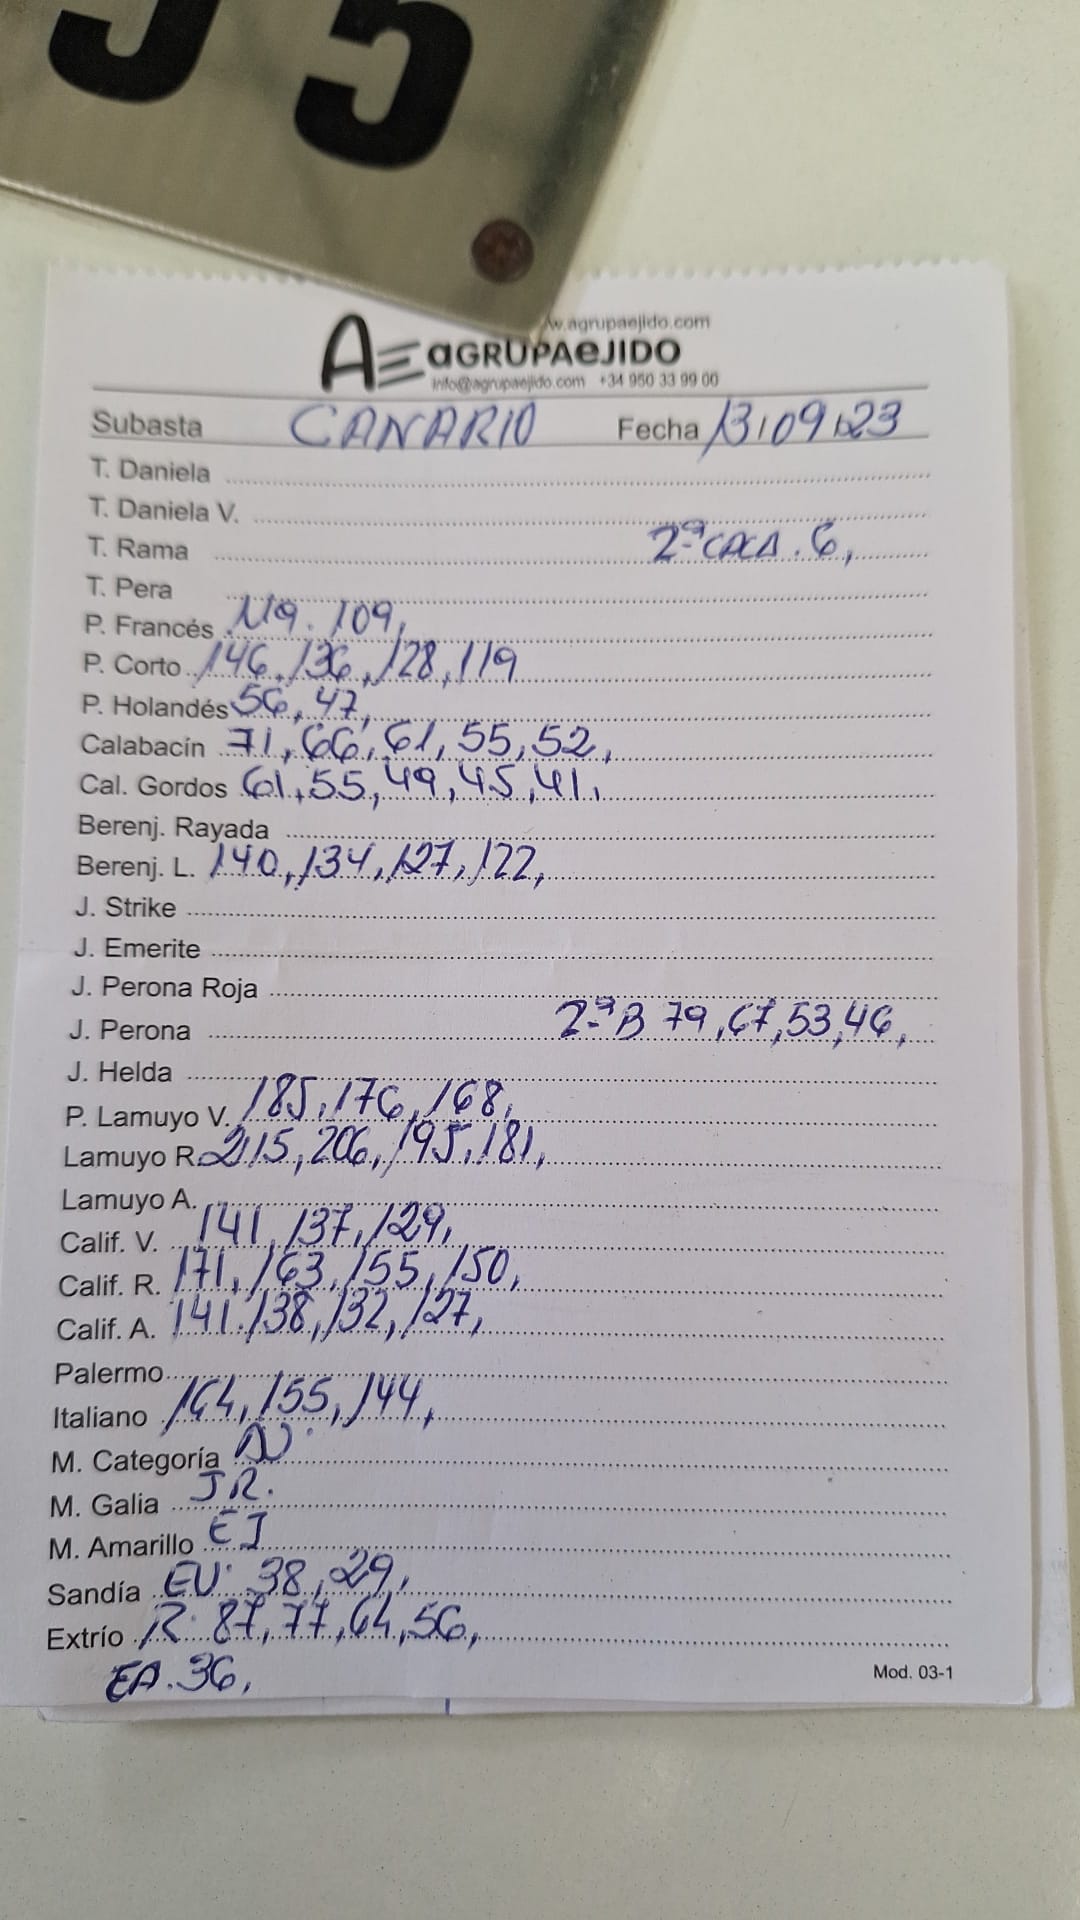 55
w.agrupaejido.com
AE aGRUPAeJIDO
info@agrupaejido.com +34 950 33 99 00
Subasta CANARIO Fecha 13/09/23
T. Daniela
T. Daniela V.
T. Rama 2ª CACA. 6,
T. Pera
P. Francés 119. 109,
P. Corto 146, 136, 128, 119
P. Holandés 56, 47,
Calabacín 71, 66, 61, 55, 52,
Cal. Gordos 61, 55, 49, 45, 41,
Berenj. Rayada
Berenj. L. 140, 134, 127, 122,
J. Strike
J. Emerite
J. Perona Roja
J. Perona 2ª B 79, 67, 53, 46,
J. Helda
P. Lamuyo V. 185, 176, 168,
Lamuyo R. 215, 206, 195, 181,
Lamuyo A.
Calif. V. 141, 137, 129,
Calif. R. 171, 163, 155, 150,
Calif. A. 141. 138, 132, 127,
Palermo
Italiano 164, 155, 144,
M. Categoría
M. Galia JR.
M. Amarillo EJ
Sandía EV. 38, 29,
Extrío R. 87, 77, 64, 56,
EA. 36,
Mod. 03-1